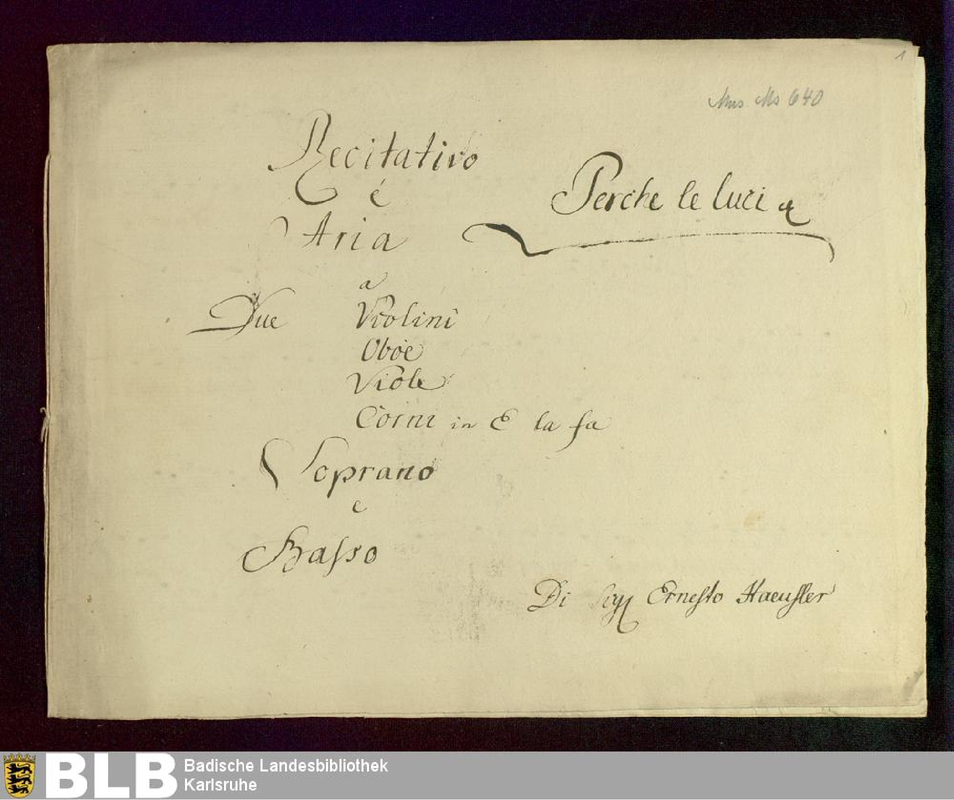 1
Mus. Ms 640
Recitativo
é
Aria
Perche le luci &
a
Due Violini
Oboe
Viole
Corni in E la fa
Soprano
e
Basso
Di Sigr Ernesto Haeusler
BLB Badische Landesbibliothek
Karlsruhe